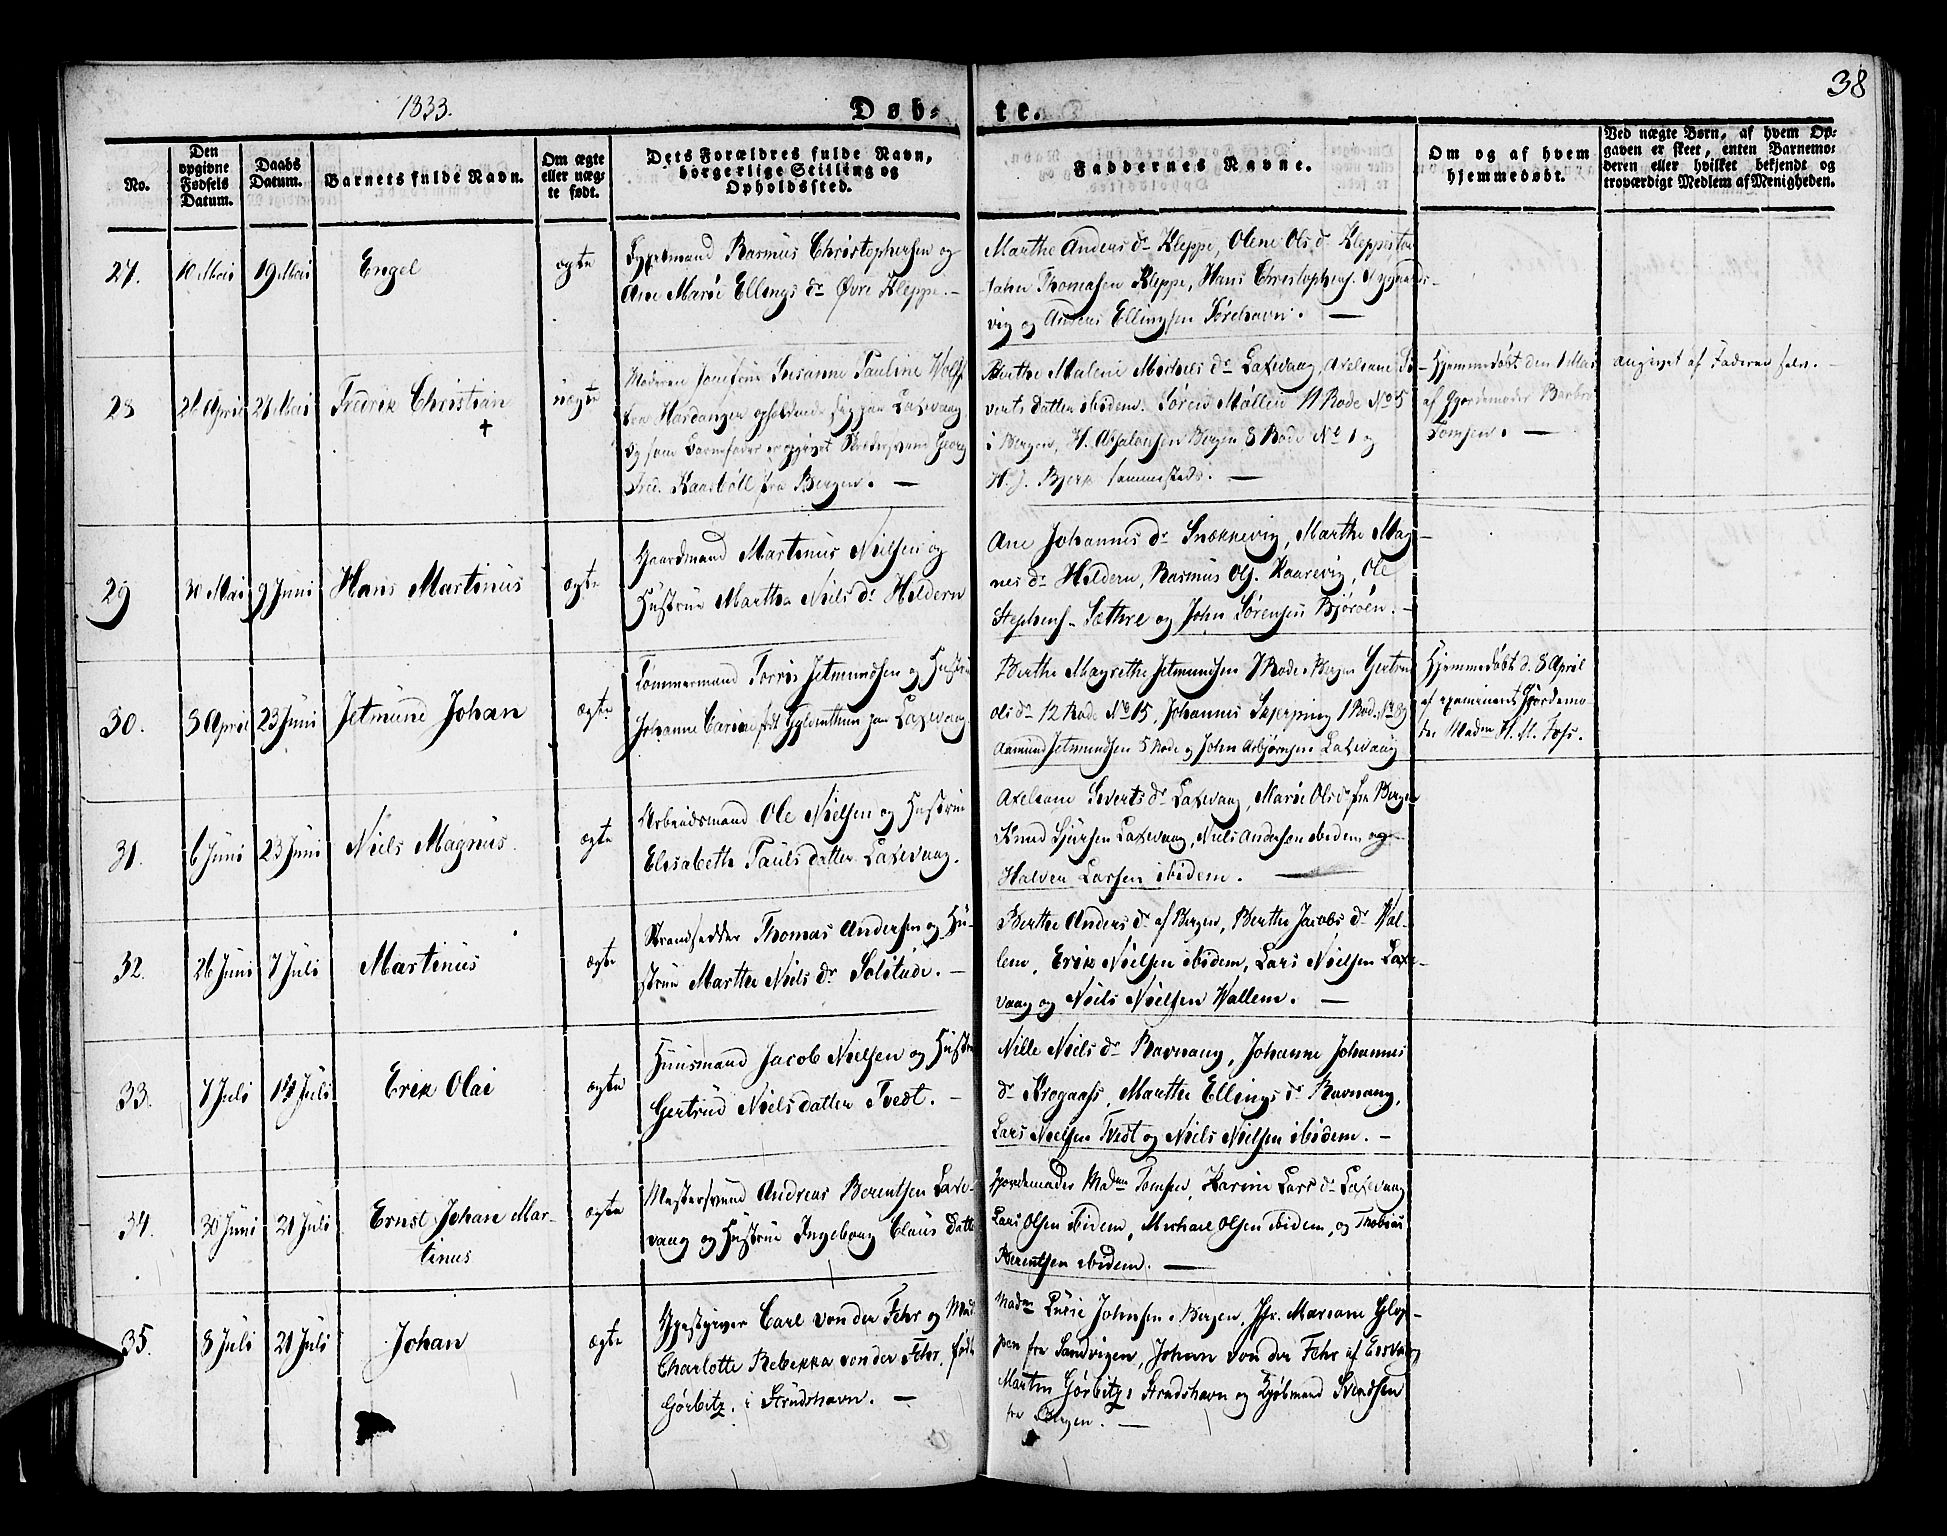 1833.
Døb- te.
38
No.
Den opgivne Fødsels Datum.
Daabs Datum.
Barnets fulde Navn.
Om ægte eller uæg- te født.
Dets Forældres fulde Navn, borgerlige Stilling og Opholdssted.
Faddernes Navne.
Om og af hvem hjemmedøbt.
Ved uægte Børn, af hvem Op- gaven er skeet, enten Barnemo- deren eller hvilket bekjendt og troværdigt Medlem af Menigheden.
27. 10 Mai 19 Mai Engel ægte
Rasmus Christophersen og
Ane Marie Ellings dr Øvre Kleppe. -
Marthe Anders dr Kleppe, Olene Ols dr
John Thomasen Kleppe, Hans Christophers.
vig og Anders Ellingsen Sørehavn. -
28 26 April 21 Mai Fredrik Christian + uægte
Moderen Josefine Susanne Pauline Wolff
fra Hardanger opholdende sig paa Laxevaag,
og som Barnefader er opgivet Georg
Fred. Kaasbøll fra Bergen. -
Berthe Malene Michels dr Laxevaag, Axeliane Si-
verts datter ibidem. Søren Møller 11 Rode No 5
i Bergen, H. Absalonsen Bergen 8 Rode No 1 og
H. J. Bjerk sammesteds. -
Hjemmedøbt den 1 Mai
af Gjordemoder Barbro
Tomsen. -
angivet af Faderen selv. -
29 30 Mai 9 Juni Hans Martinus ægte
Gaardmand Martinus Nielsen og
Hustrue Marthe Niels dr Heldern
Ane Johannes dr Snekkevig, Marthe Mag-
nes dr Heldern, Rasmus Ols. Kaarevig, Ole
Stephens. Sæthre og John Sørensen Bjørøen. -
30. 5 April 23 Juni Jetmund Johan ægte
Tømmermand Torris Jetmundsen og Hustrue
Johanne Carine født paa Laxevaag
Berthe Magrethe Jetmundsen 7 Rode Bergen Gertrud
Ols dr 12 Rode No 15, Johannes Skjerping 1 Rode
Aamund Jetmundsen 5 Rode og John Asbjørnsen Laxevaag
Hjemmedøbt d. 8 April
af examineret Gjordemo
der Madm M. M. Foss.
31. 6 Juni 23 Juni Niels Magnus. ægte
Arbeidsmand Ole Nielsen og Hustrue
Elisabeth Pauls datter Laxevaag.
Axeliane Siverts dr Laxevaag, Marie Ols dr fra Bergen
Knud Laxevaag, Niels Andersen ibidem og
Halver Larsen ibidem. -
32. 26 Juni 7 Juli Martinus ægte
Strandsidder Thomas Andersen og Hu-
strue Marthe Niels dr Solitude. -
Berthe Anders dr af Bergen, Berthe Jacobs dr Val-
lem, Erik Nielsen ibidem, Lars Nielsen Laxe-
vaag og Niels Nielsen Wallem. -
33. 7 Juli 14 Juli Erik Olai ægte
Huusmand Jacob Nielsen og Hustrue
Gertrud Niels datter Tvedt. -
Nille Niels dr Ravnang, Johanne Johannes
dr Krogaas, Marthe Ellings dr Ravnang,
Lars Nielsen Tvedt og Niels Nielsen ibidem. -
34. 30 Juni 21 Juli Ernst Johan Mar-
tinus ægte
Mestersvend Andreas Berentsen Laxe-
vaag og Hustrue Ingeborg Claus Datter
Gjordemoder Madm Tomsen, Karine Lars dr Laxevaag
Lars Olsen ibidem, Michael Olsen ibidem, og Thobias
Berentsen ibidem. -
35. 8 Juli 21 Juli Johan ægte
Gjestgiver Carl von der Fehr og Mad.
Charlotte Rebekka von der Fehr, født
Görbitz, i Strudshavn. -
Madm Lusie Johnsen i Bergen, Jfr. Mariane Glop-
pen fra Sandvigen, Johan von der Fehr af
Martin Görbitz i Strudshavn og Kjøbmand Svendsen
fra Bergen. -